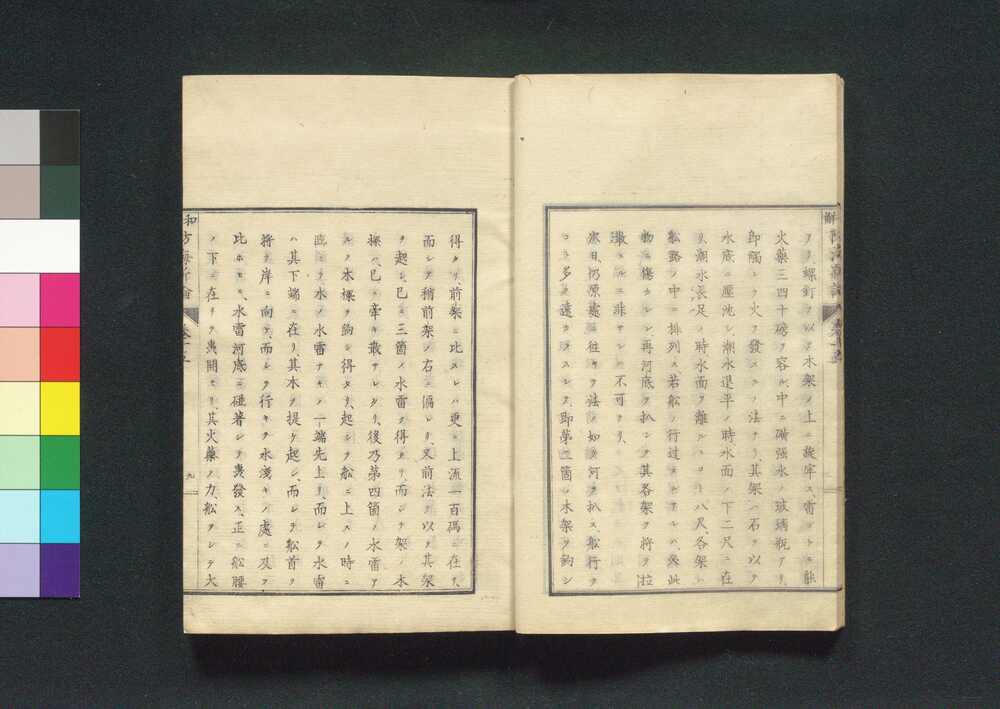 ヲリ、螺釘ヲ以テ木架ノ上ニ旋牢ス、雷ゴトニ能
火藥三四十磅ヲ容ル、中ニ磺强水ノ玻璃瓶アリ、
卽觸レテ火ヲ發スルノ法ナリ、其架ハ石ヲ以テ
水底ニ壓沈シ、潮水退平ノ時、水面ノ下二尺ニ在
リ、潮水長足ノ時水面ヲ離ルヽコト八尺、各架
船路ノ中ニ排列ス、若船ノ行過スルアルハ、必此
物ニ傷ラレン、再河底ヲ扒シテ其各架ヲ將ヲ拉
散スルニ非サレハ不可ナリ、
次日、仍原處ニ往キテ法ノ如ク河ヲ扒ス、船行ヲ
コト多ク遠カラスシテ、卽第三箇ノ木架ヲ鉤シ
得タリ、前架ニ比スレハ更ニ上流一百碼ニ在リ、
而シテ稍前架ノ右ニ偏レリ、又前法ヲ以テ其架
ヲ起シ、已ニ三箇ノ水雷ヲ得タリ、而シテ架ノ木
樑ハ、已ニ牽キ散サレタリ、後乃第四箇ノ水雷ア
ルノ木樑ヲ鉤シ得タリ、起シテ船ニ上スノ時ニ
臨ミテ、水ノ水雷ナキノ一端先上リ、而シテ水雷
ハ其下端ニ在リ、其木ヲ提ケ起シ、而シテ船首ヲ
將テ岸ニ向ヒ、而シテ行キテ水淺キノ處ニ及ヲ
比ホヒニ、水雷河底ニ碰著シテ轟發ス、正ニ船腰
ノ下ニ在リテ轟開セリ、其火藥ノ力、船ヲシテ大
防海新論
卷十五
九